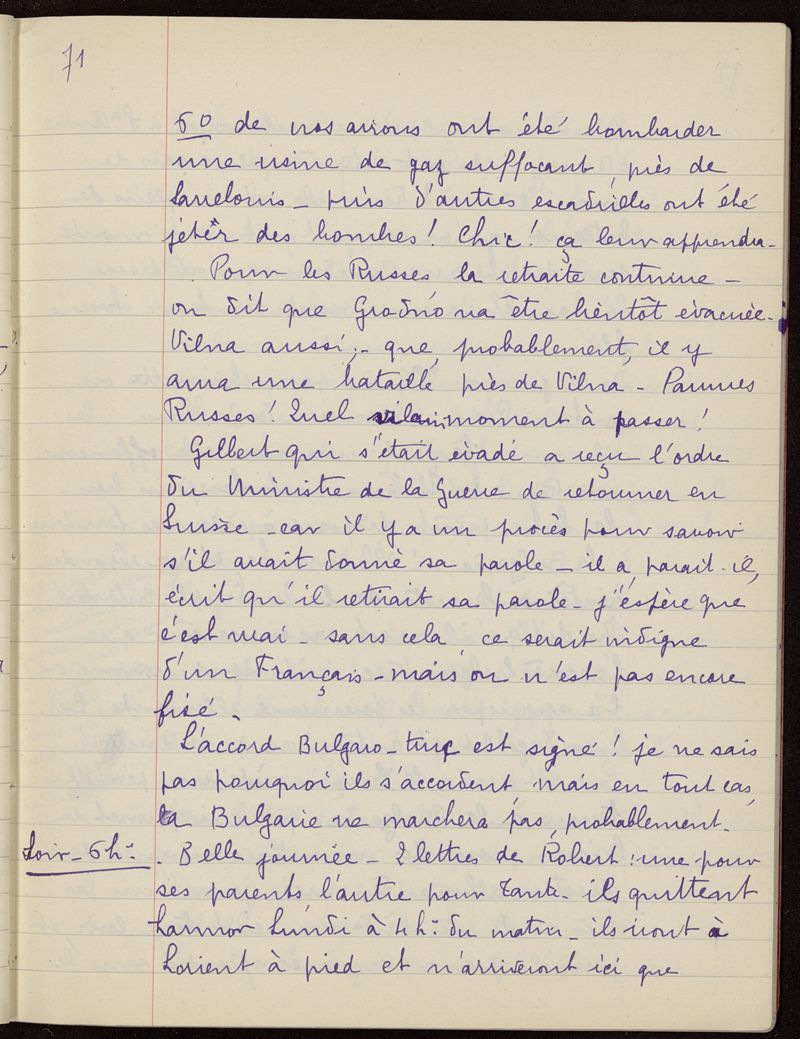 71
60 de nos avions ont été bombarder
une usine de gaz suffocant, près de
Sarrelouis - puis d'autres escadrilles ont été
jeter des bombes! Chic! ça leur apprendra -
Pour les Russes, la retraite continue -
on dit que Grodno va être bientôt évacuée -
Vilna aussi; - que, probablement, il y
aura une bataille près de Vilna - Pauvres
Russes! Quel vilain moment à passer!
Gilbert qui s'était évadé a reçu l'ordre
du Ministre de la Guerre de retourner en
Suisse - car il y a un procès pour savoir
s'il avait donné sa parole - il a, parait-il,
écrit qu'il retirait sa parole - j'espère que
c'est vrai - sans cela, ce serait indigne
d'un Français - mais on n'est pas encore
fixé -
L'accord Bulgaro-turc est signé! je ne sais
pas pourquoi ils s'accordent, mais en tout cas,
la Bulgarie ne marchera pas, probablement -
Soir - 6 h. - Belle journée - 2 lettres de Robert: une pour
ses parents, l'autre pour Tante - ils quittent
Larmor Lundi à 4 h. du matin - ils iront à
Lorient à pied et n'arriveront ici que